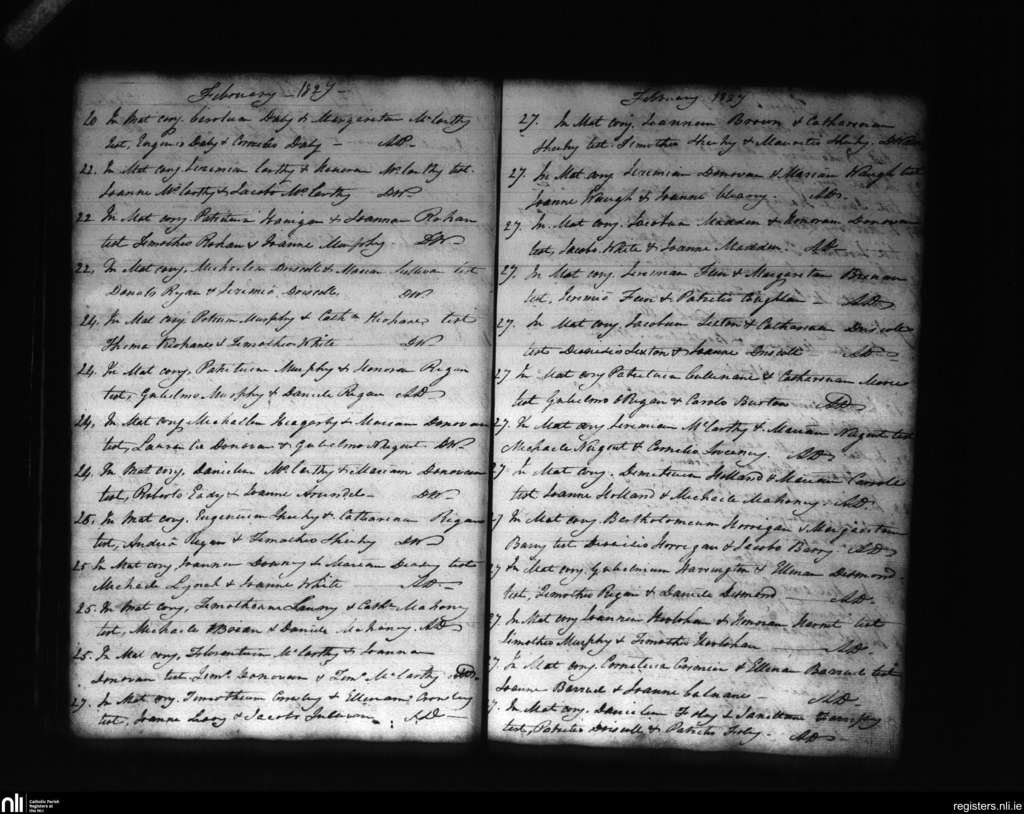 February - 1827 -
20 In Mat conj. Daly & Margaretam McCarthy
test, Eugenio Daly & Cornelio Daly - AD-
22. In Mat conj Jeremian Carthy & Honoram McCarthy test.
Joanne McCarthy & Jacobo McCarthy DW-
22 In Mat conj. Patritium & Joannam Rohan
test Timotheo Rohan & Joanne Murphy DW-
22. In Mat conj, Michaelem Driscoll & Mariam Sullivan test
Danale Ryan & Jeremia Driscoll, DW
24. In Mat conj Petrum Murphy & Cathm Keohane, test
Thoma Keohane & Timotheo White DW
24. In Mat conj. Patritium Murphy & Honoram Regan
test, Gulielmo Murphy & Daniele Regan AD-
24. In Mat conj Michaelem Heagerty & Mariam Donovan
test, Laurentio Donovan & Gulielmo Nugent DW-
24. In Mat conj. Danielem McCarthy & Mariam Donovan
test, Roberto Eady & Joanne Arundel - DW-
25. In Mat conj. Eugenium Sheehy & Catharinam Regan
test, Andrea Regan & Timotheo Sheehy DW
25 In Mat conj Joannem Downy & Mariam Deasy test
Michaele Lynch & Joanne White - AD-
25. In Mat conj, Timotheum & Cathm Mahony
test, Michaele & Daniele Mahony. AD
25. In Mat conj, Florentium McCarthy & Joannam
Donovan test Timo Donovan & Timo McCarthy AD-
27. In Mat conj. Timotheum Crowley & Ellenam Crowley
test, Joanne Leary & Jacobo Sullivan. AD-
February 1827
27. In Mat conj. Joannem Brown & Catharinam
Sheehy test. Timotheo Sheehy & Mauritio Sheehy.
27. In Mat conj. Jeremian Donovan & Mariam Waugh test
Joanne Waugh & Joanne Cleary. AD-
27. In Mat conj. Jacobum Madden & Honoram Donovan
test, Jacobo White & Joanne Madden. AD-
27. In Mat conj. Jeremian Feen & Margaretam Brenan
test, Jeremia Feen & Patritio Coughlan AD-
27. In Mat conj, Jacobum Sexton & Catharinam Driscoll
test Dionisio Sexton & Joanne Driscoll AD-
27 In Mat conj Patritium Cullinane & Catharinam Moore
test Gulielmo O Regan & Carolo Burton AD
27. In Mat conj Jeremian McCarthy & Mariam Nugent test
Michaele Nugent & Cornelio Sweeney. AD
27 In Mat conj. Demetrium Holland & Mariam Carroll
test Joanne Holland & Michaele Mahony. AD.
27 In Mat conj Bartholomeum Horrigan & Margaretam
Barry test Dionisio Horrigan & Jacobo Barry. AD
27 In Mat conj. Gulielmum Harrington & Ellenam Desmond.
test, Timotheo Regan & Daniele Desmond - AD-
27. In Mat conj Joannem Hoolohan & Honoram test
Timotheo Murphy & Timotheo Hoolohan AD-
27. In Mat conj. Cornelium & Ellenam Barrett test
Joanne Barrett & Joanne - AD-
27. In Mat conj. Danielem Foley & test,
test, Patritio Driscoll & Patritio Foley. AD
nli
Catholic Parish
Registers at
the NLI
registers.nli.ie